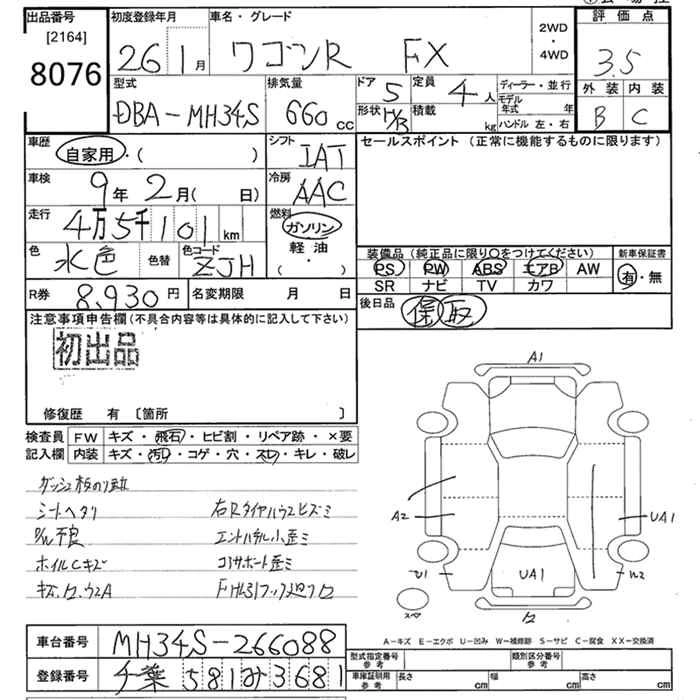 出品番号
[2164]
8076
初度登録年月
26 1月
車名・グレード
ワゴンR FX
2WD
4WD
評価点
3.5
外装 内装
B C
型式
DBA-MH34S
排気量
660 cc
ドア 5
定員 4人
形状 H/B
積載 kg
ディーラー・並行
モデル年式 年
ハンドル 左・右
車歴
自家用・( )
シフト
IAT
セールスポイント (正常に機能するものに限ります)
車検
9年 2月( 日)
冷房
AAC
走行
4万5千101 km
燃料
ガソリン
軽油
( ・ )
色 水色 色替
色コード ZJH
装備品 (純正品に限り○をつけてください)
新車保証書
PS PW ABS エアB AW
SR ナビ TV カワ
有・無
R券 8,930円
名変期限 月 日
後日品 保 取
注意事項申告欄(不具合内容等は具体的に記入して下さい)
初出品
修復歴 有 〔箇所 〕
検査員
記入欄
FW キズ・飛石・ヒビ割・リペア跡・×要
内装 キズ・汚れ・コゲ・穴・スレ・キレ・破レ
シートヘタリ
右Rタイヤハウスヒズミ
P/W不良
エンドパネル小歪ミ
ホイルCキズ
コアサポート歪ミ
A1
A2
UA1
UA1
U1
スペア
A-キズ E-エクボ U-凹み W-補修跡 S-サビ C-腐食 XX-交換済
車台番号 MH34S-266088
登録番号 千葉 581み3681
型式指定番号 参考
類別区分番号 参考
車庫証明用 参考
長さ cm
幅 cm
高さ cm